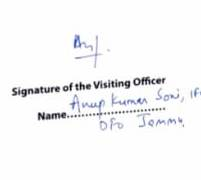 Signature of the Visiting Officer
Name.......... Anup Kumar Soni, IF
DFO Jammu